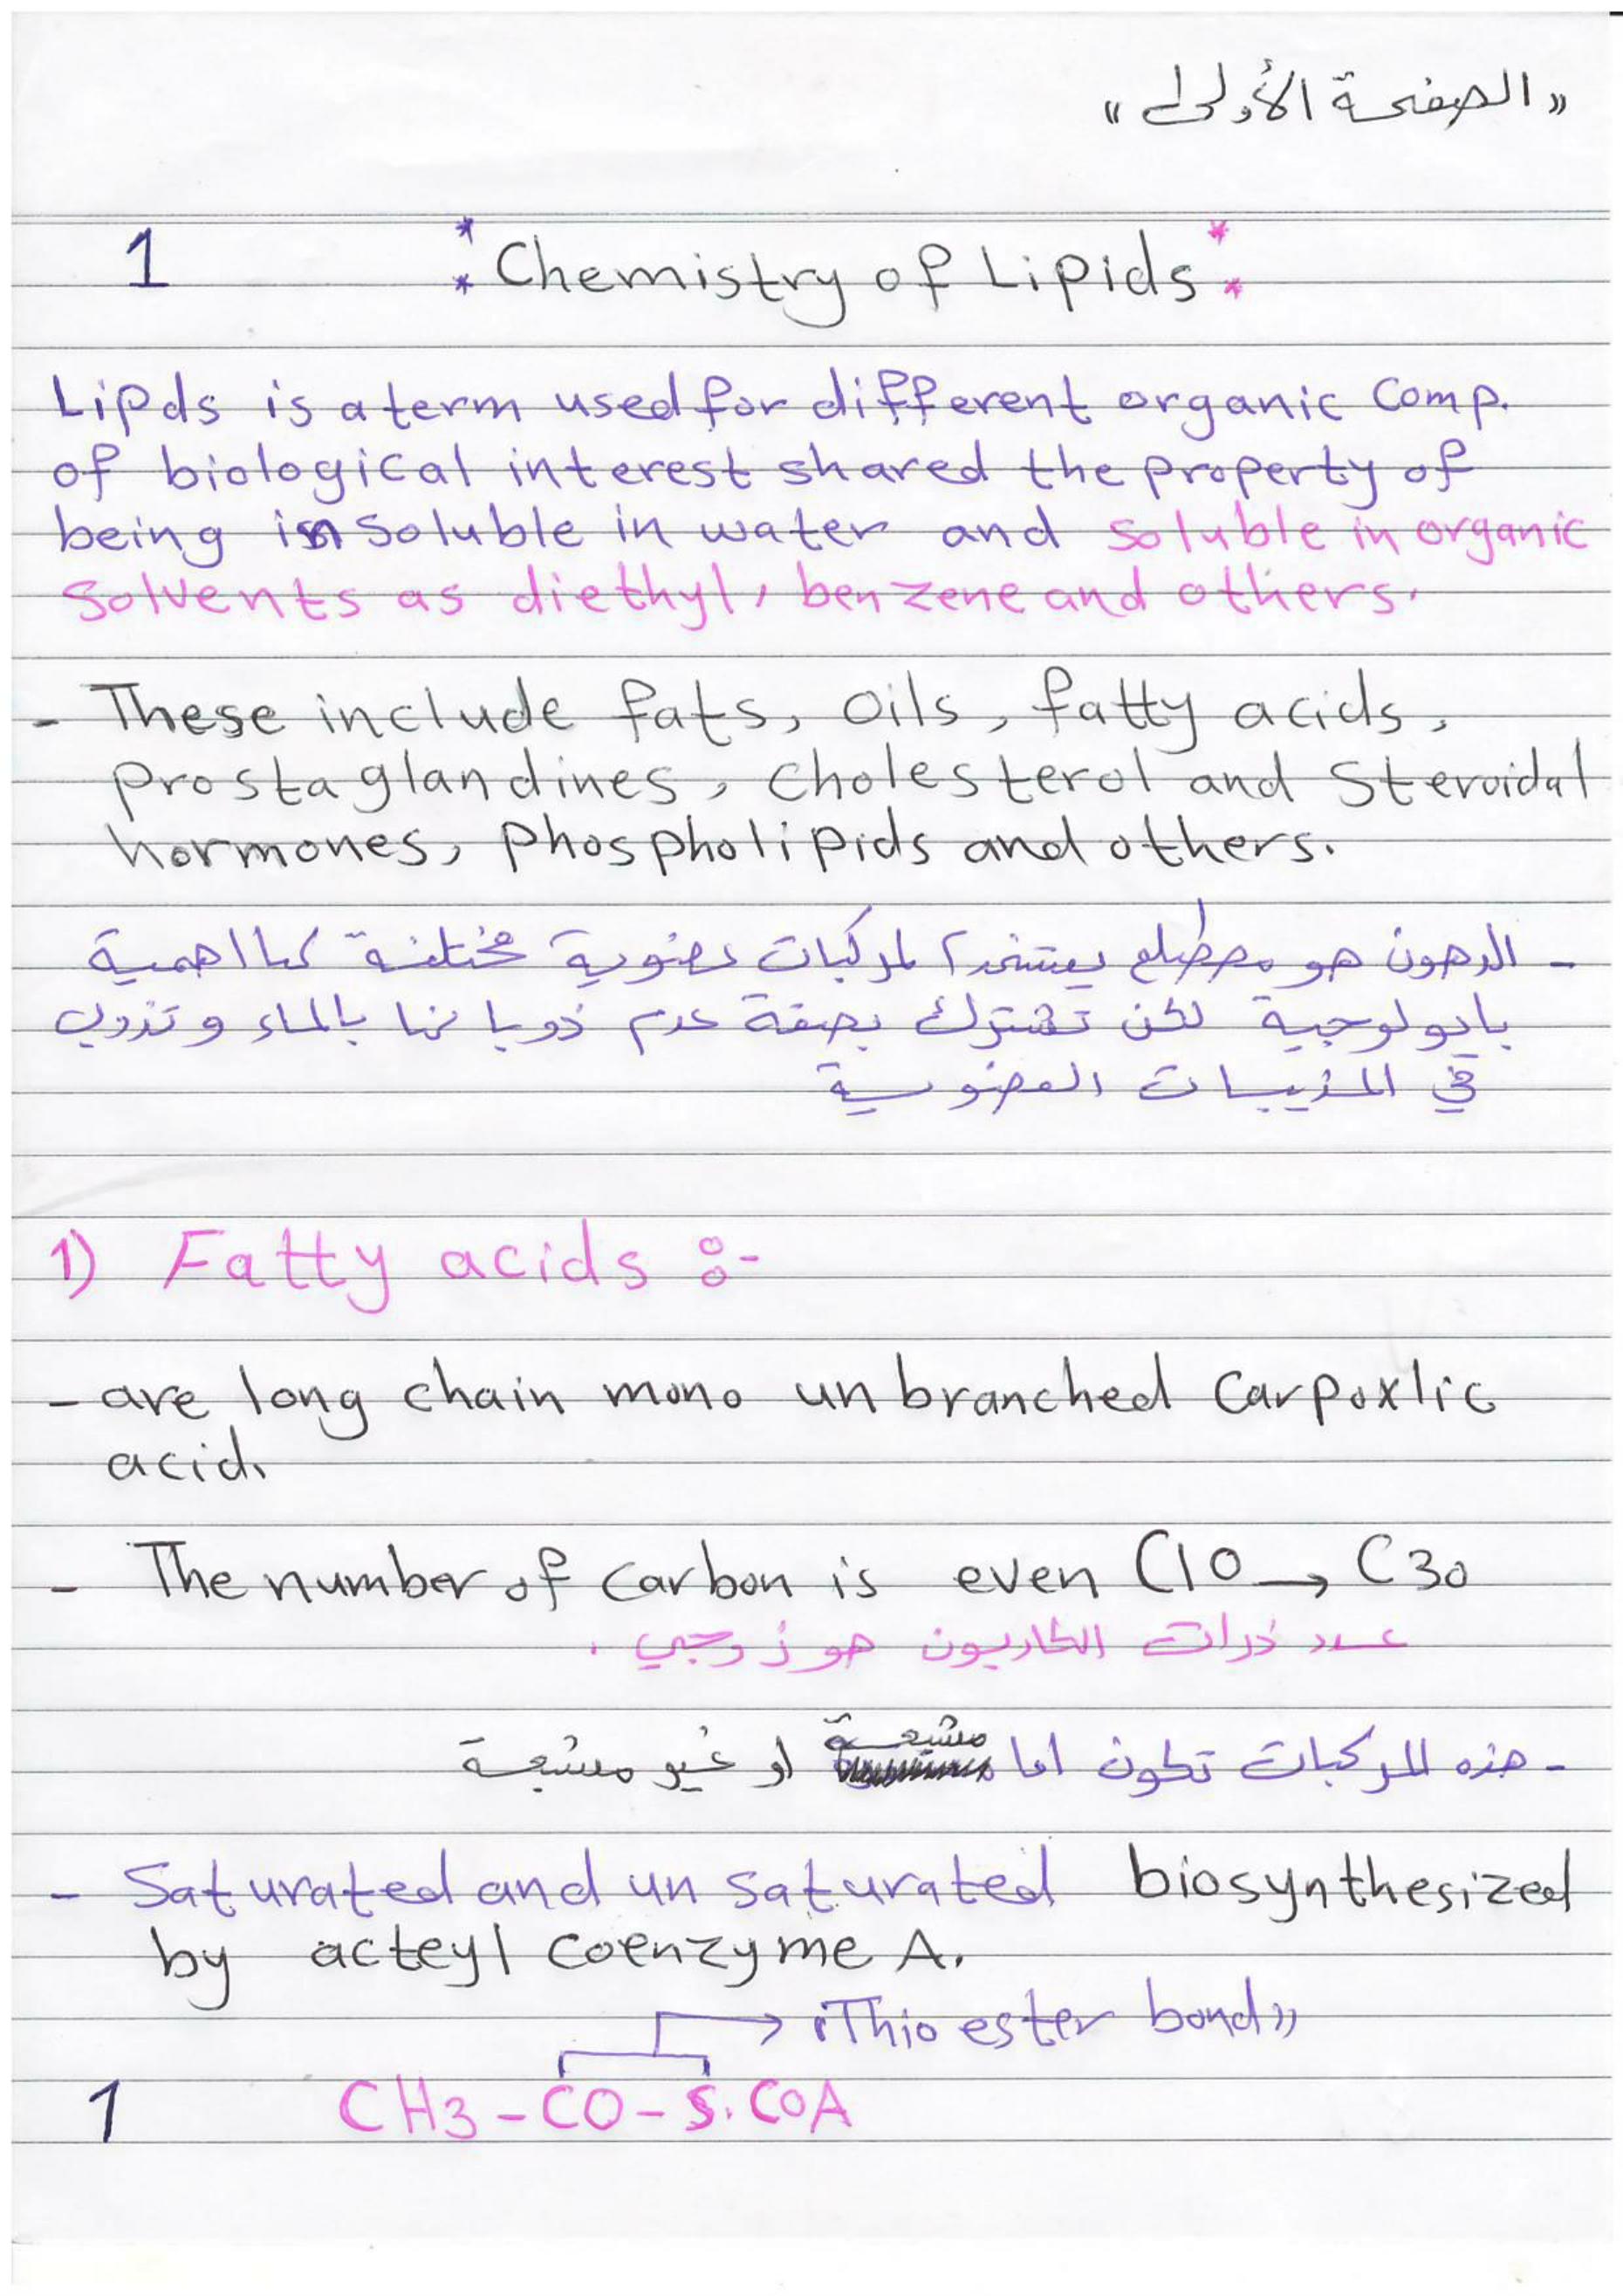 «الصفحة الأولى»
1
* * Chemistry of Lipids * *
Lipds is a term used for different organic Comp.
of biological interest shared the property of
being insoluble in water and soluble in organic
Solvents as diethyl, benzene and others.
- These include fats, oils, fatty acids,
prostaglandines, cholesterol and Steroidal
hormones, phospholipids and others.
- الدهون هو مصطلح يستخدم لمركبات عضوية مختلفة لها اهمية
بايولوجية لكن تشترك بصفة عدم ذوبانها بالماء و تذوب
في المذيبات العضوية
1) Fatty acids :-
- are long chain mono unbranched Carpoxlic
acid.
- The number of carbon is even C10 → C30
عدد ذرات الكاربون هو زوجي .
- هذه المركبات تكون اما مشبعة او غير مشبعة
- Saturated and un saturated biosynthesized
by acteyl coenzyme A.
→ «Thio ester bond»
1 CH3 - CO - S. COA